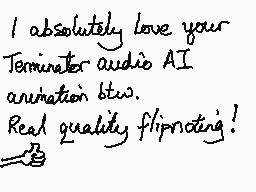 I absolutely love your
Terminator audio AI
animation btw.
Real quality flipnoting!